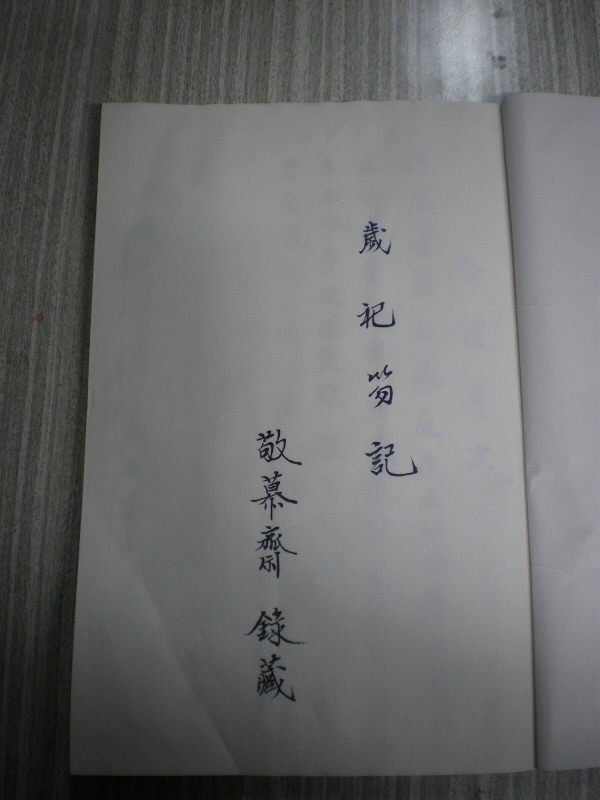 歲祀笏記
敬慕齋 錄藏